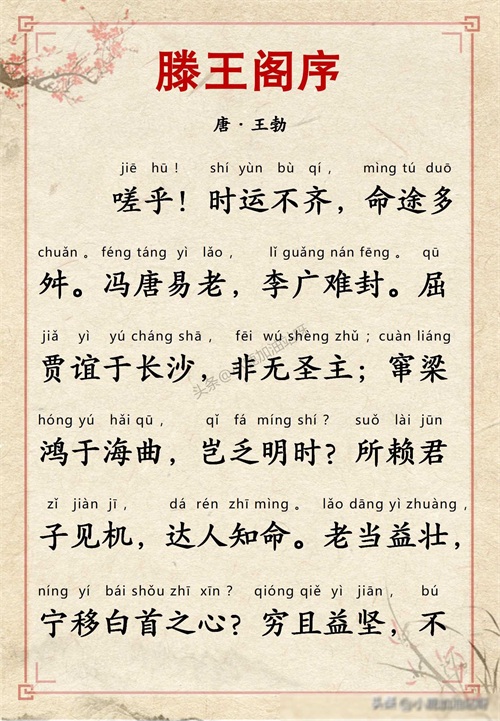 滕王阁序
唐·王勃
jiē hū！ shí yùn bù qí， mìng tú duō
嗟乎！时运不齐，命途多
chuǎn。féng táng yì lǎo， lǐ guǎng nán fēng。 qū
舛。冯唐易老，李广难封。屈
jiǎ yì yú cháng shā， fēi wú shèng zhǔ；cuàn liáng
贾谊于长沙，非无圣主；窜梁
hóng yú hǎi qū， qǐ fá míng shí？ suǒ lài jūn
鸿于海曲，岂乏明时？所赖君
zǐ jiàn jī， dá rén zhī mìng。 lǎo dāng yì zhuàng，
子见机，达人知命。老当益壮，
níng yí bái shǒu zhī xīn？ qióng qiě yì jiān， bú
宁移白首之心？穷且益坚，不